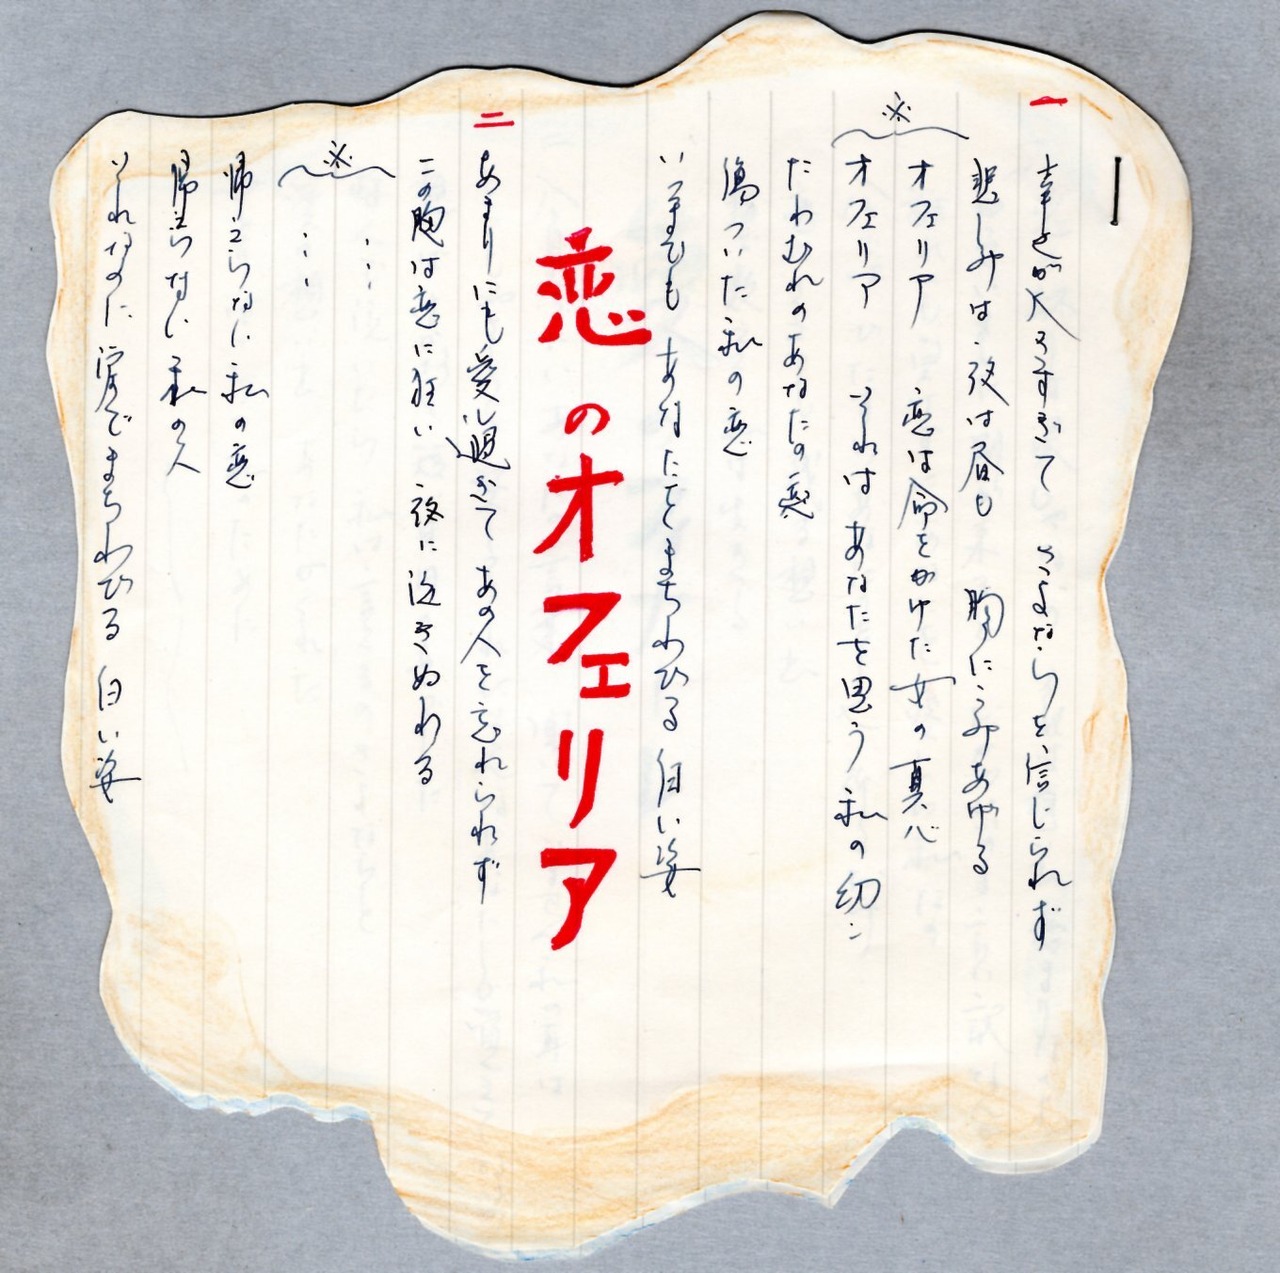 一
幸せが大きすぎて さよならを信じられず
悲しみは 夜は昼も 胸にこみあげる
※
オフェリア 恋は命をかけた女の真心
オフェリア それはあなたを思う 私の幻
たわむれのあなたの恋
傷ついた私の恋
いまでも あなたをまちわびる 白い姿
恋のオフェリア
二
あまりにも愛し過ぎて あの人を忘れられず
この胸は恋に狂い 夜に泣きぬれる
※
……
……
帰らない 私の恋
帰らない 私の人
それなのに 涙でまちわびる 白い姿